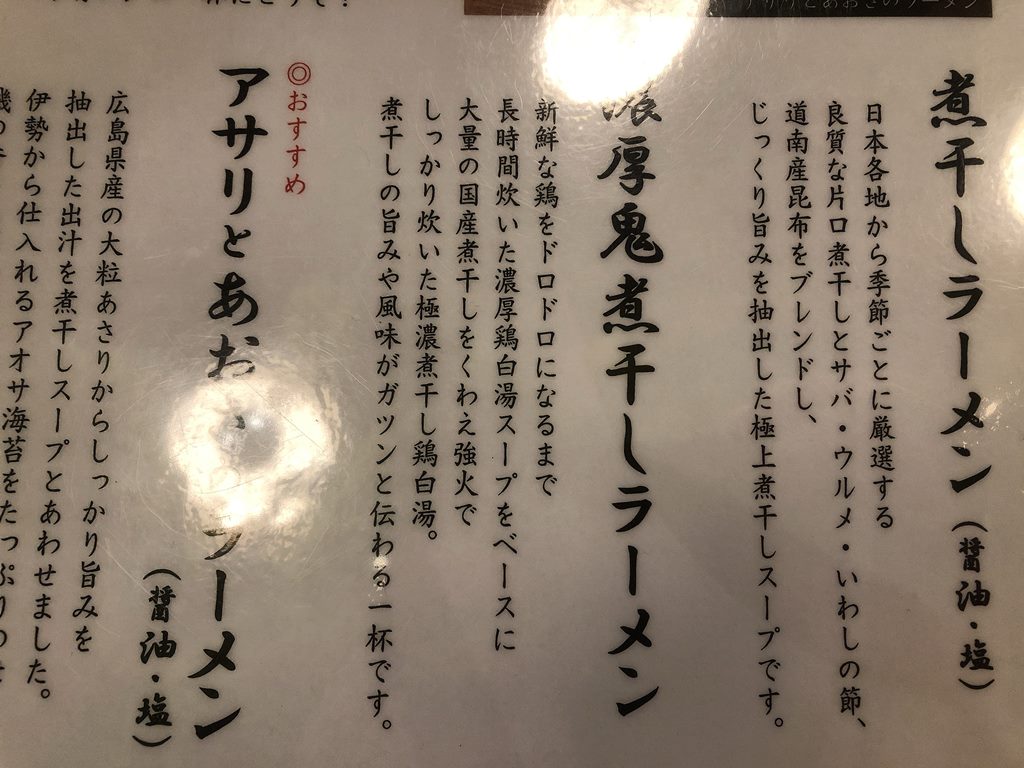 煮干しラーメン（醤油・塩）
日本各地から季節ごとに厳選する
良質な片口煮干しとサバ・ウルメ・いわしの節、
道南産昆布をブレンドし、
じっくり旨みを抽出した極上煮干しスープです。
濃厚鬼煮干しラーメン
新鮮な鶏をドロドロになるまで
長時間炊いた濃厚鶏白湯スープをベースに
大量の国産煮干しをくわえ強火で
しっかり炊いた極濃煮干し鶏白湯。
煮干しの旨みや風味がガツンと伝わる一杯です。
◎おすすめ
アサリとあおさのラーメン
（醤油・塩）
広島県産の大粒あさりからしっかり旨みを
抽出した出汁を煮干しスープとあわせました。
伊勢から仕入れるアオサ海苔をたっぷりのせ